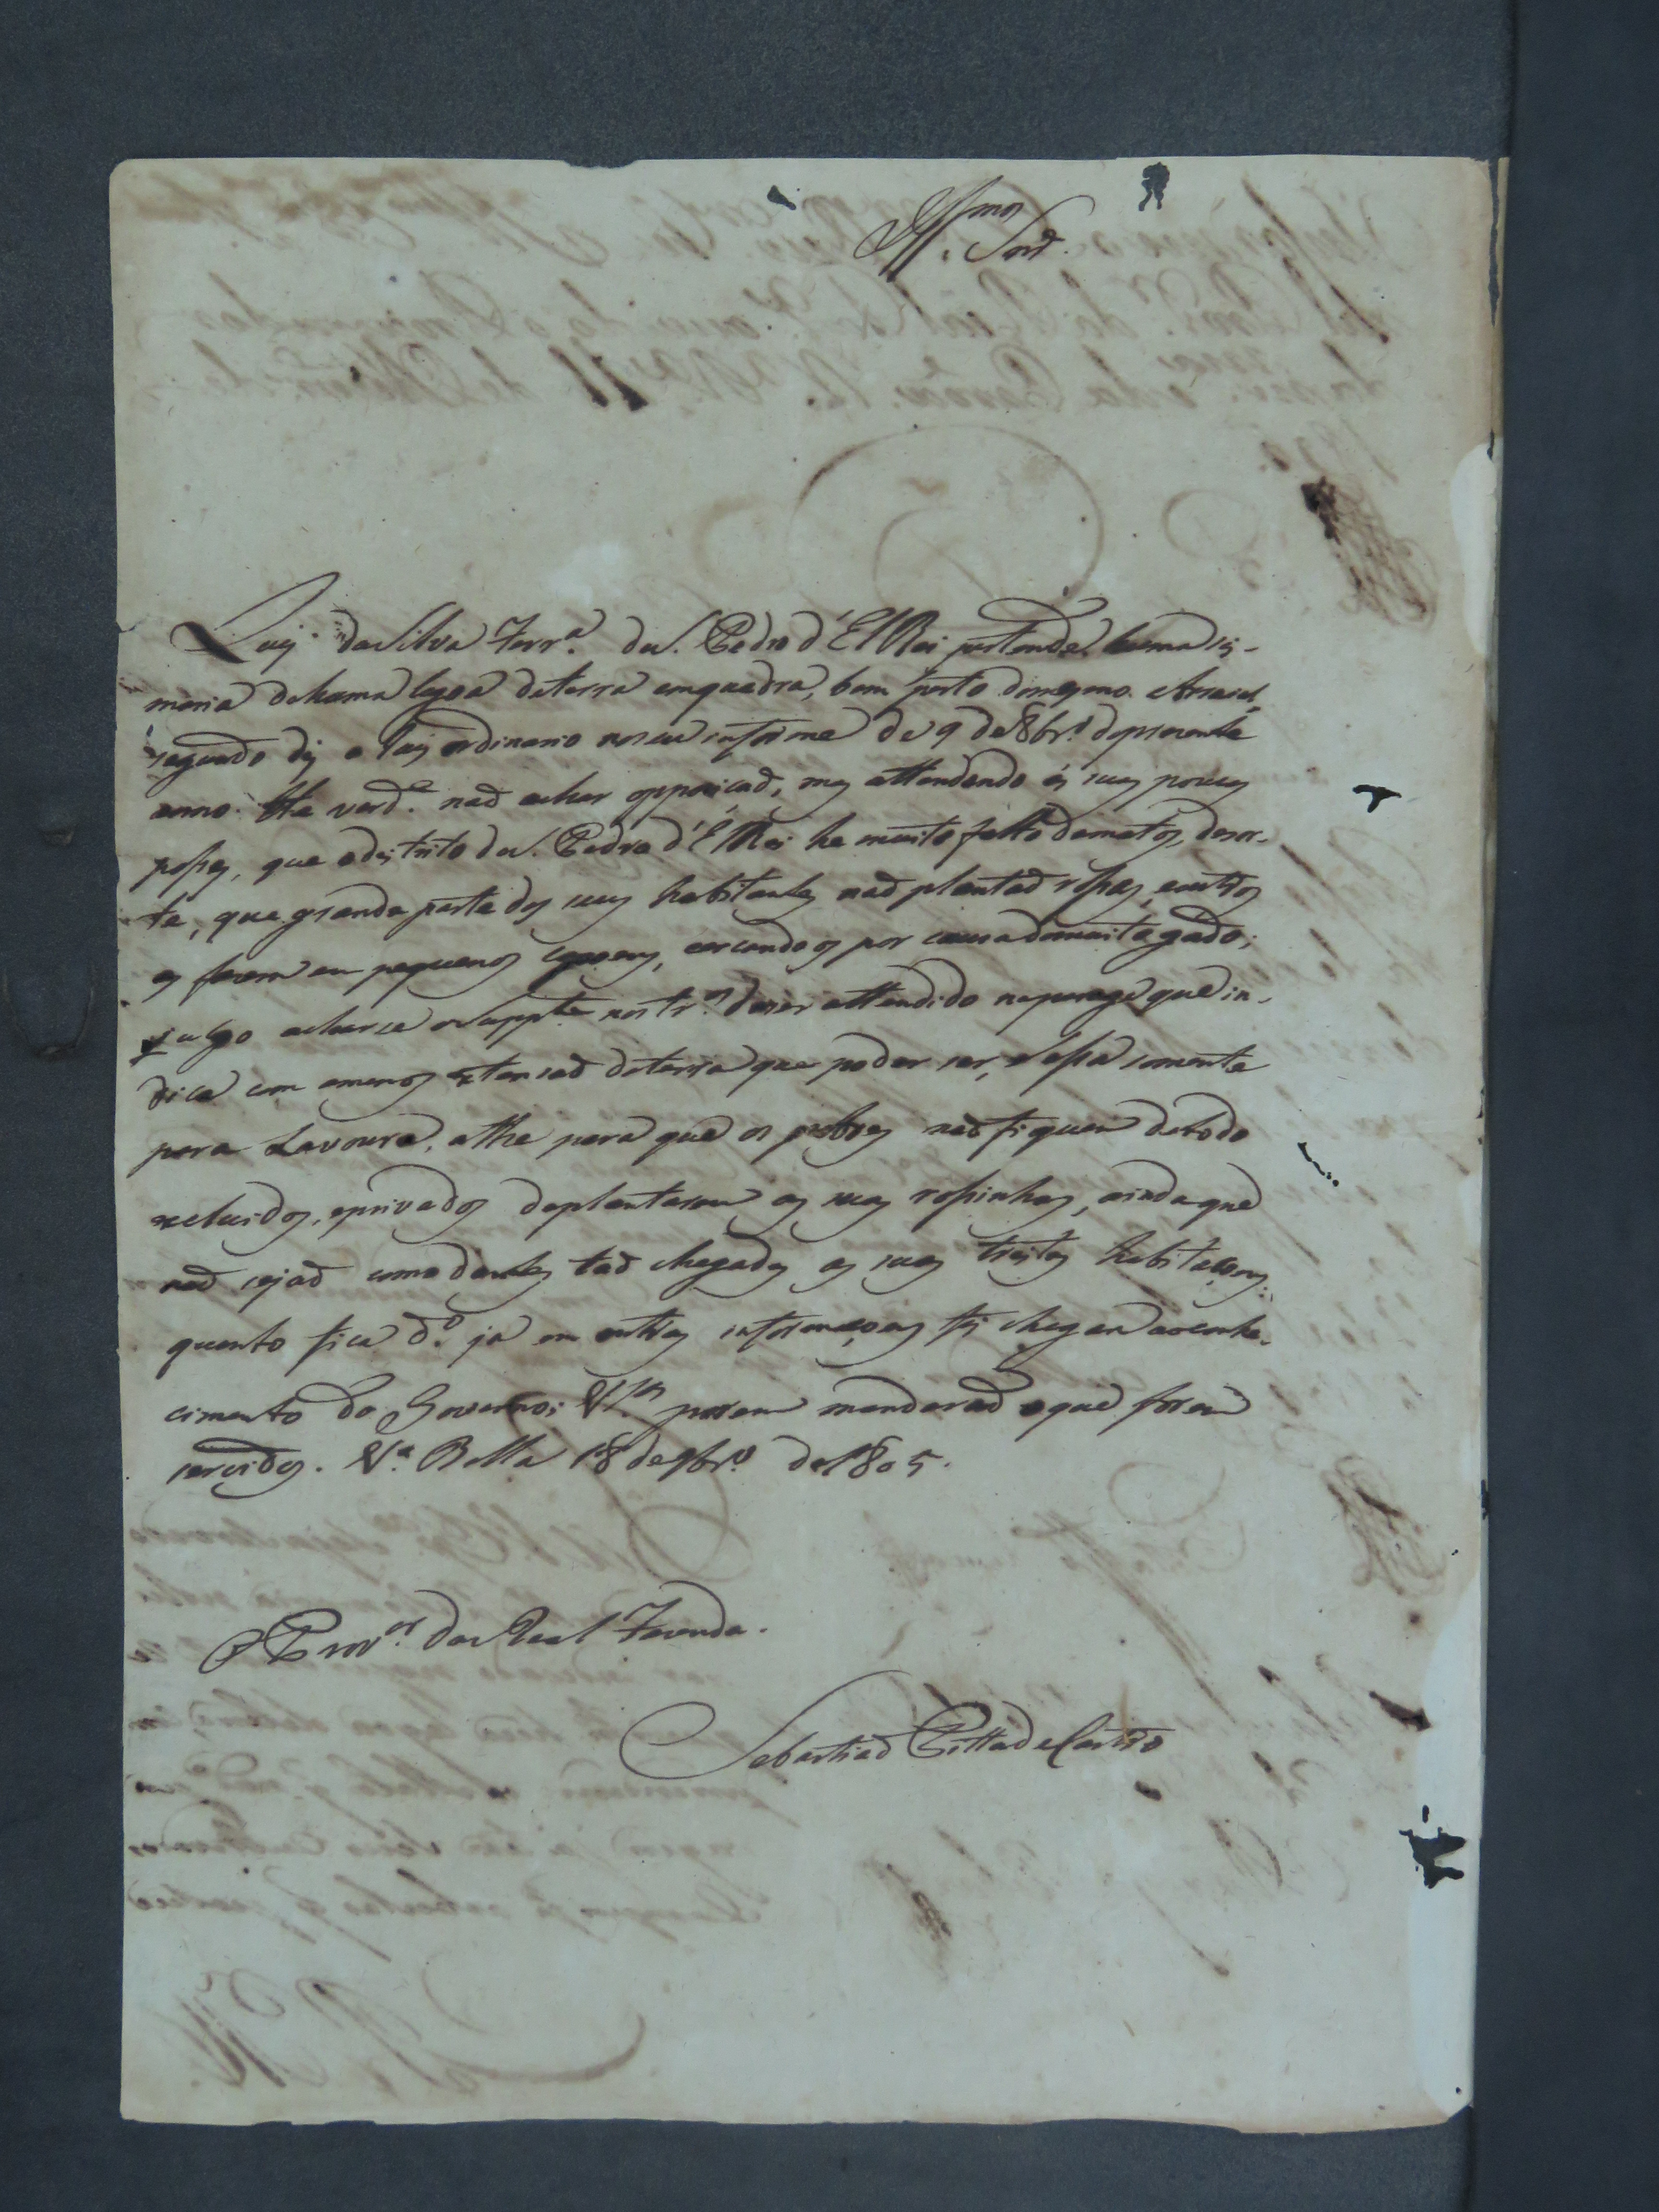 Ill.mos Snr.es
Luiz da Silva Ferr.a de S. Pedro d'El Rei pertende huma sis-
maria de huma legoa de terra em quadra, bem perto do mesmo Arraial,
segundo diz o Juiz ordinario no seu informe de 9 de 8br.o do presente
anno. He verd.e naõ achar oppoziçaõ, mas attendendo ás suas poucas
posses, que o destrito de S. Pedro d'El Rei he muito falto de matos, desor-
te, que grande parte dos seus habitantes naõ plantaõ rossas, e outros
as fazem em pequenos capoens, cercandoos por causa do muito gado;
julgo acharse o Supp.te nos tr.os de ser attendido na parage que in-
dica com a menos extensaõ de terra que poder ser, e essa somente
para Lavoura, athe para que os pobres naõ fiquem de todo
xcluidos, e privados de plantarem as suas rossinhas, ainda que
naõ sejaõ como dantes taõ chegadas as suas tristes habitaçoens:
quanto fica d.o ja em outras informaçoens fiz chegar ao conhe-
cimento do Governo; V. S.as porem mandaraõ o que forem
servidos. V.a Bella 18 de 9br.o de 1805.
O Prov.or da Real Fazenda.
Sebastiaõ Pitta de Castro